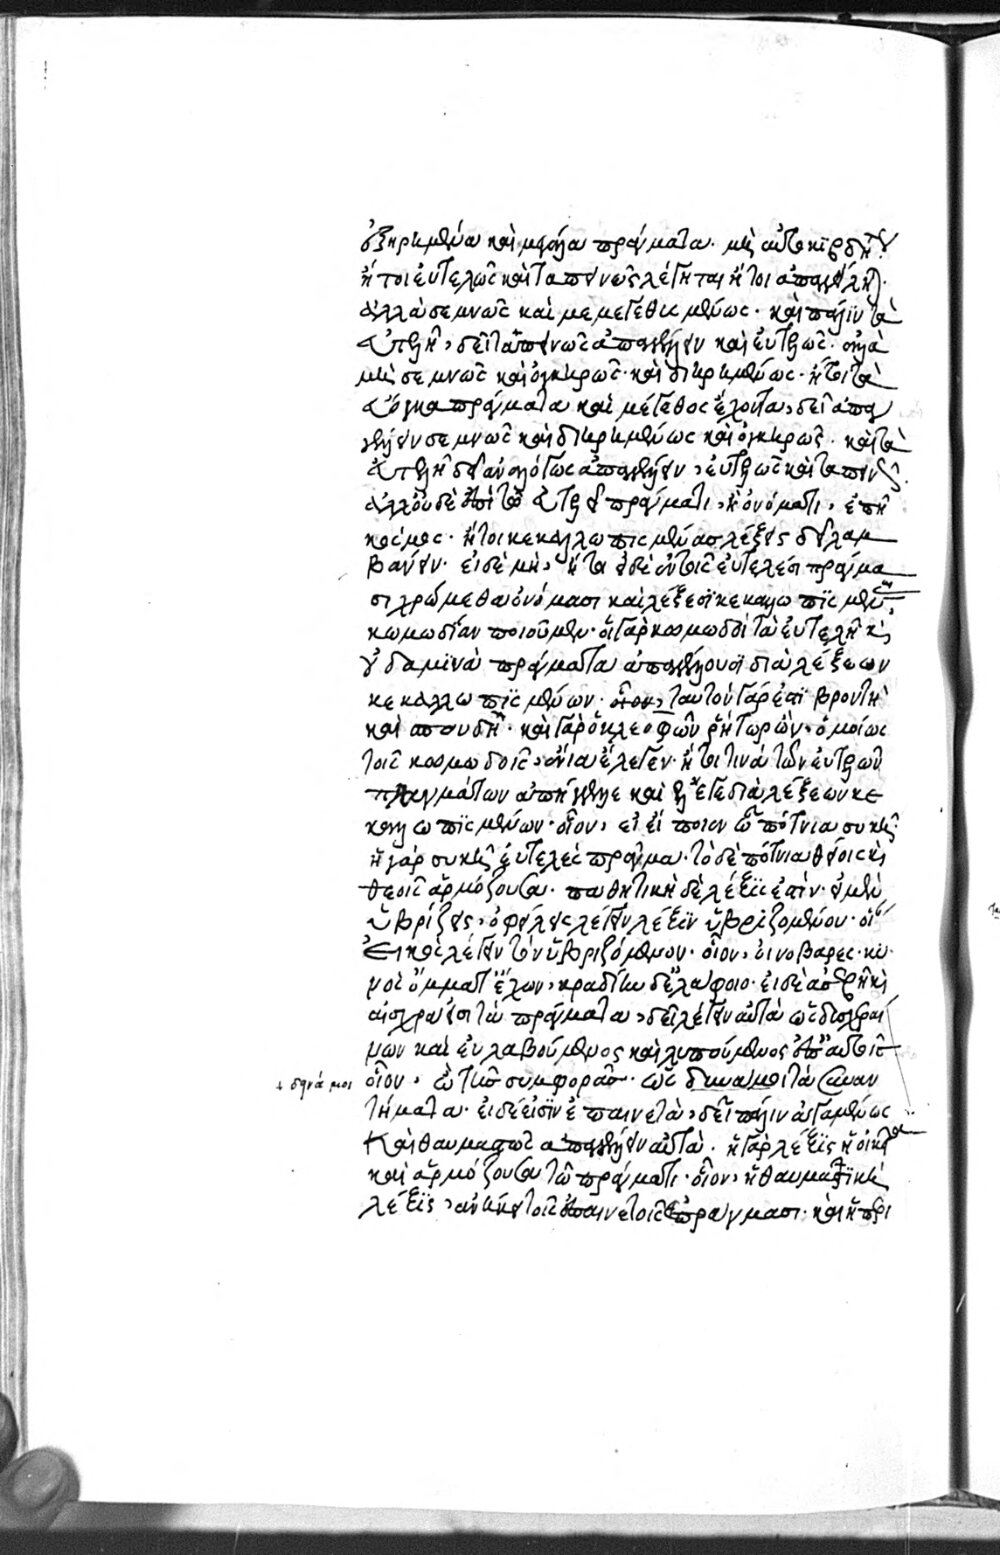 καὶ μεγάλα πράγματα· μὴ αὐτοκιβδή
ἤτοι εὐτελῶς καὶ ταπεινῶς λέγηται ἤτοι ἀπαγγέλη
ἀλλὰ σεμνῶς καὶ μεμεγεθυσμένως· καὶ πάλιν τὰ
εὐτελῆ, δεῖ ταπεινῶς ἀπαγγέλειν καὶ εὐτελῶς· ἀλλὰ
μὴ σεμνῶς καὶ ὀγκηρῶς· καὶ διηρμένως· ἤτοι τὰ
εὔογκα πράγματα καὶ μέγεθος ἔχοντα, δεῖ ἀπαγ
γέλειν σεμνῶς καὶ διηρμένως καὶ ὀγκηρῶς· καὶ τὰ
εὐτελῆ δεῖ ἀναλόγως ἀπαγγέλειν, εὐτελῶς καὶ ταπεινῶς
ἀλλ' οὐδὲ ἐπὶ τῷ εὐτελεῖ πράγματι, ἢ ὀνόματι, ἐπῆ
κόσμος· ἤτοι κεκαλλωπισμένας λέξεις δεῖ λαμ
βάνειν· εἰ δὲ μὴ, ἤτοι εὐτελέσι πράγμα
σι χρώμεθα ὀνόμασι καὶ λέξεσι κεκαλλωπισμέν
κωμωδίαν ποιοῦμεν· οἱ γὰρ κωμωδοὶ τὰ εὐτελῆ κὶ
οὐδαμινὰ πράγματα ἀπαγγέλουσι διὰ λέξεων
κεκαλλωπισμένων· οἷον, ταυτὸν γάρ ἐστι βροντὴ
καὶ σπουδῆ· καὶ γὰρ ὁ κλεοφῶν ῥήτωρ ὢν, ὁμοίως
τοῖς κωμωδοῖς, ἔνια ἔλεγεν· ἤτοι τινὰ τῶν εὐτελῶν
πραγμάτων ἀπήγγειλε καὶ ἔλεγε διὰ λέξεων κε
καλλωπισμένων· οἷον, εἰ εἴποιεν ὦ πότνια συκῆ·
ἡ γὰρ συκῆ εὐτελὲς πρᾶγμα· τὸ δὲ πότνια θείοις κὶ
θεοῖς ἁρμόζουσα· παθητικὴ δὲ λέξις ἐστὶν· εἰ μὲν
ὑβρίζεις, ὀφείλεις λέγειν λέξιν ὑβριζομένου·
λέγειν τὸν ὑβριζόμενον· οἷον, οἰνοβαρὲς· κυ
νὸς ὄμματ' ἔχων, κραδίην δ' ἐλάφοιο· εἰ δὲ ἀσεβῆ κὶ
αἰσχρὰ εἰσι τὰ πράγματα, δεῖ λέγειν αὐτὰ ὡς δυσχεραί
νων καὶ εὐλαβούμενος καὶ λυπούμενος ἐπ' αὐτοῖς
+ δεινά μοι οἷον, ὦ τῆς συμφορᾶς· ὡς
τήματα· εἰ δέ εἰσιν ἐπαινετὰ, δεῖ πάλιν ἀγαμένως
καὶ θαυμαστῶς ἀπαγγέλειν αὐτὰ· ἡ γὰρ λέξις ἡ οἰκεία
καὶ ἁρμόζουσα τῶ πράγματι· οἷον, ἡ θαυμαστικὴ
λέξις, ἀνήκει τοῖς ἐπαινετοῖς πράγμασι· καὶ ἡ περὶ